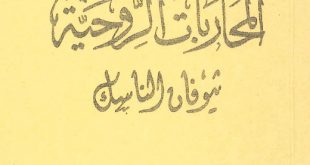 المحاربات الروحية
ثيوفان الناسك